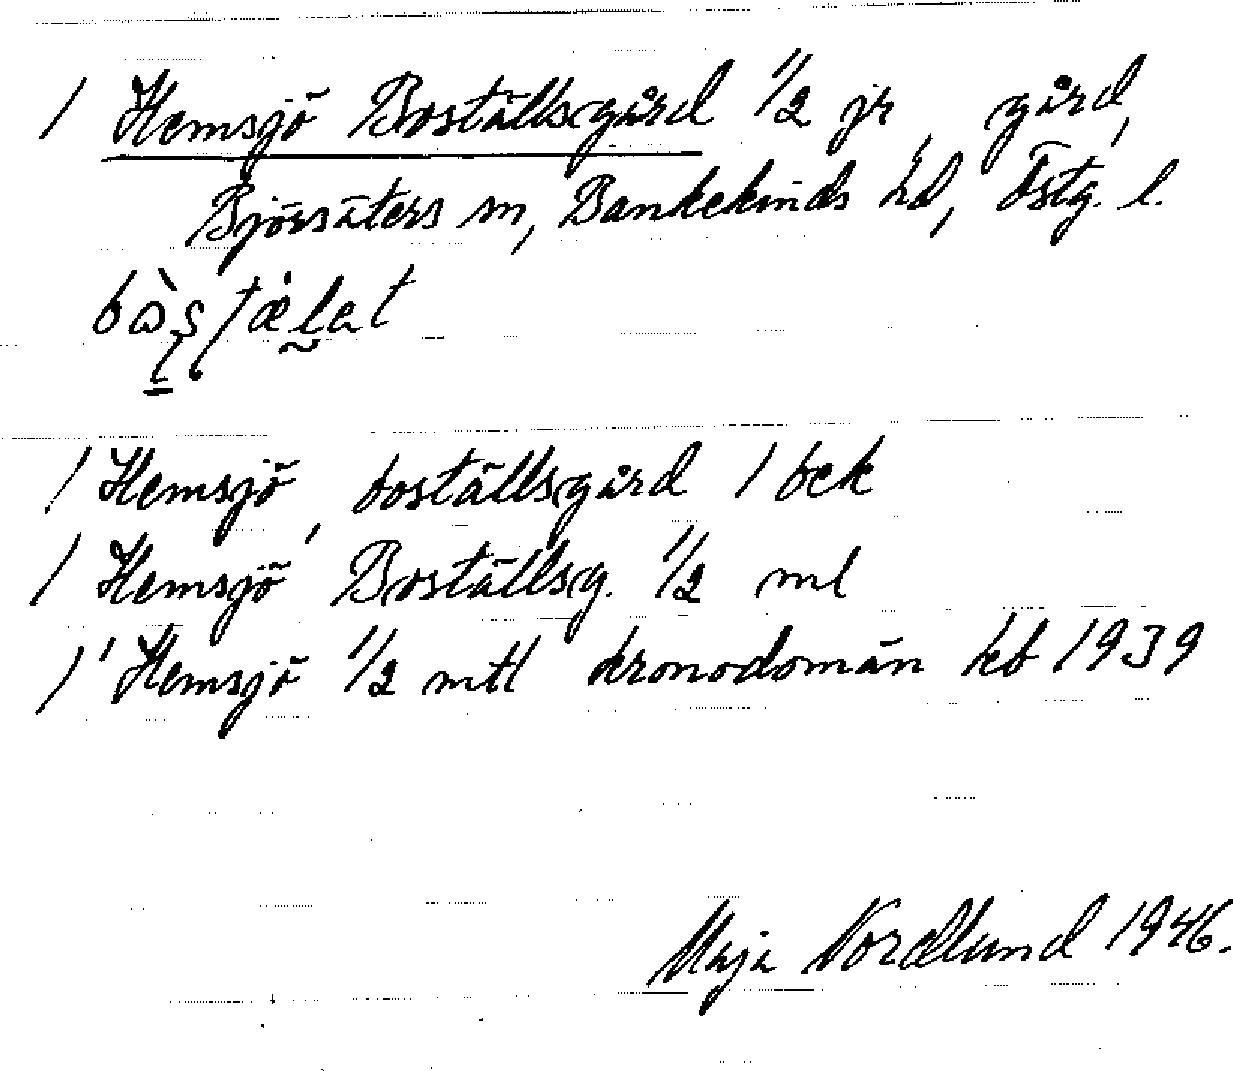 / Hemsjö Boställsgård 1/2 jr, gård,
Björsäters sn, Bankekinds hd, Östg. l.
/ Hemsjö, boställsgård / bek
/ Hemsjö Boställsg. 1/2 ml
/ Hemsjö 1/2 mtl kronodomän kb 1939
Maja Nordlund 1946.